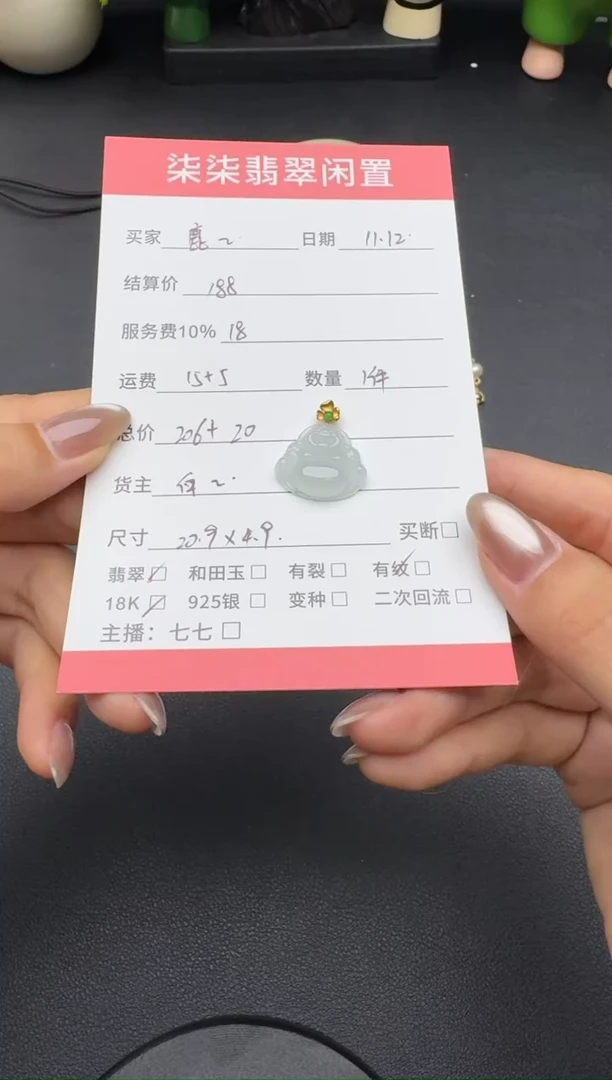 柒柒翡翠闲置
买家 鹿~ 日期 11.12.
结算价 188
服务费10% 18
运费 15+5 数量 1件
总价 206+ 20
货主 ~.
尺寸 20.9×4.9. 买断□
翡翠☑ 和田玉□ 有裂□ 有纹□
18K☑ 925银□ 变种□ 二次回流□
主播：七七□